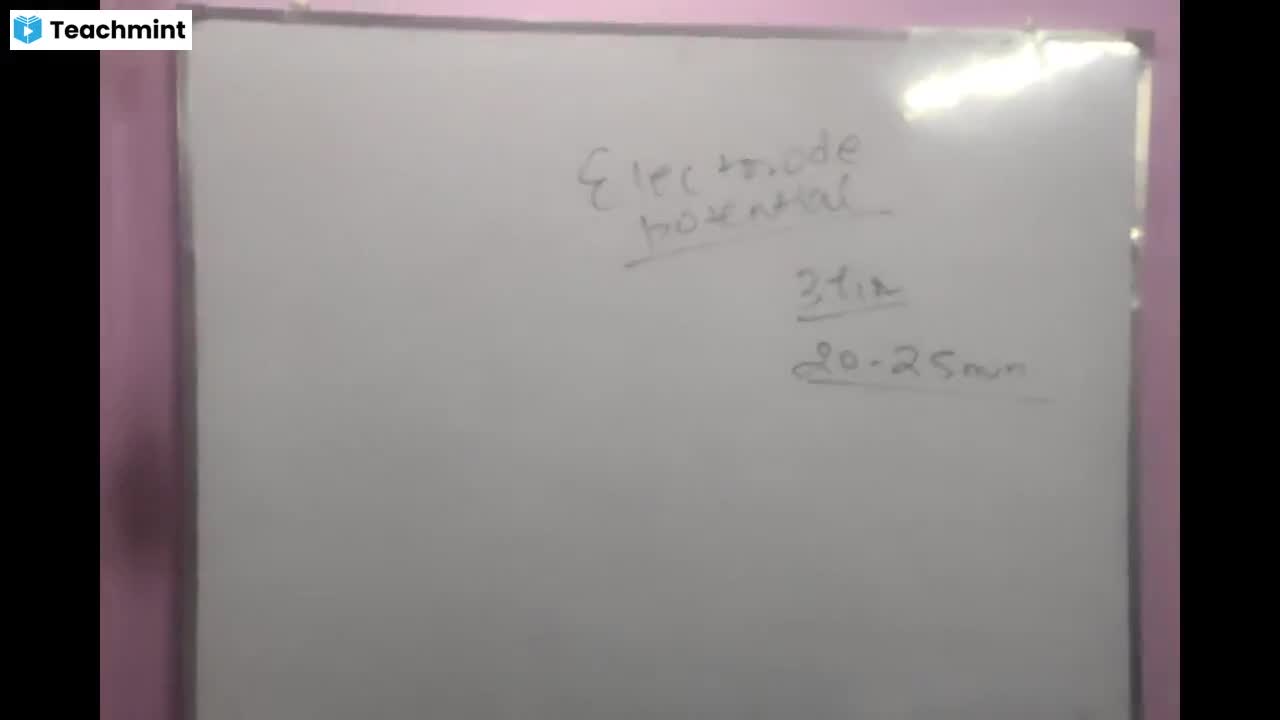 Teachmint
Electrode
potential
20-25 min